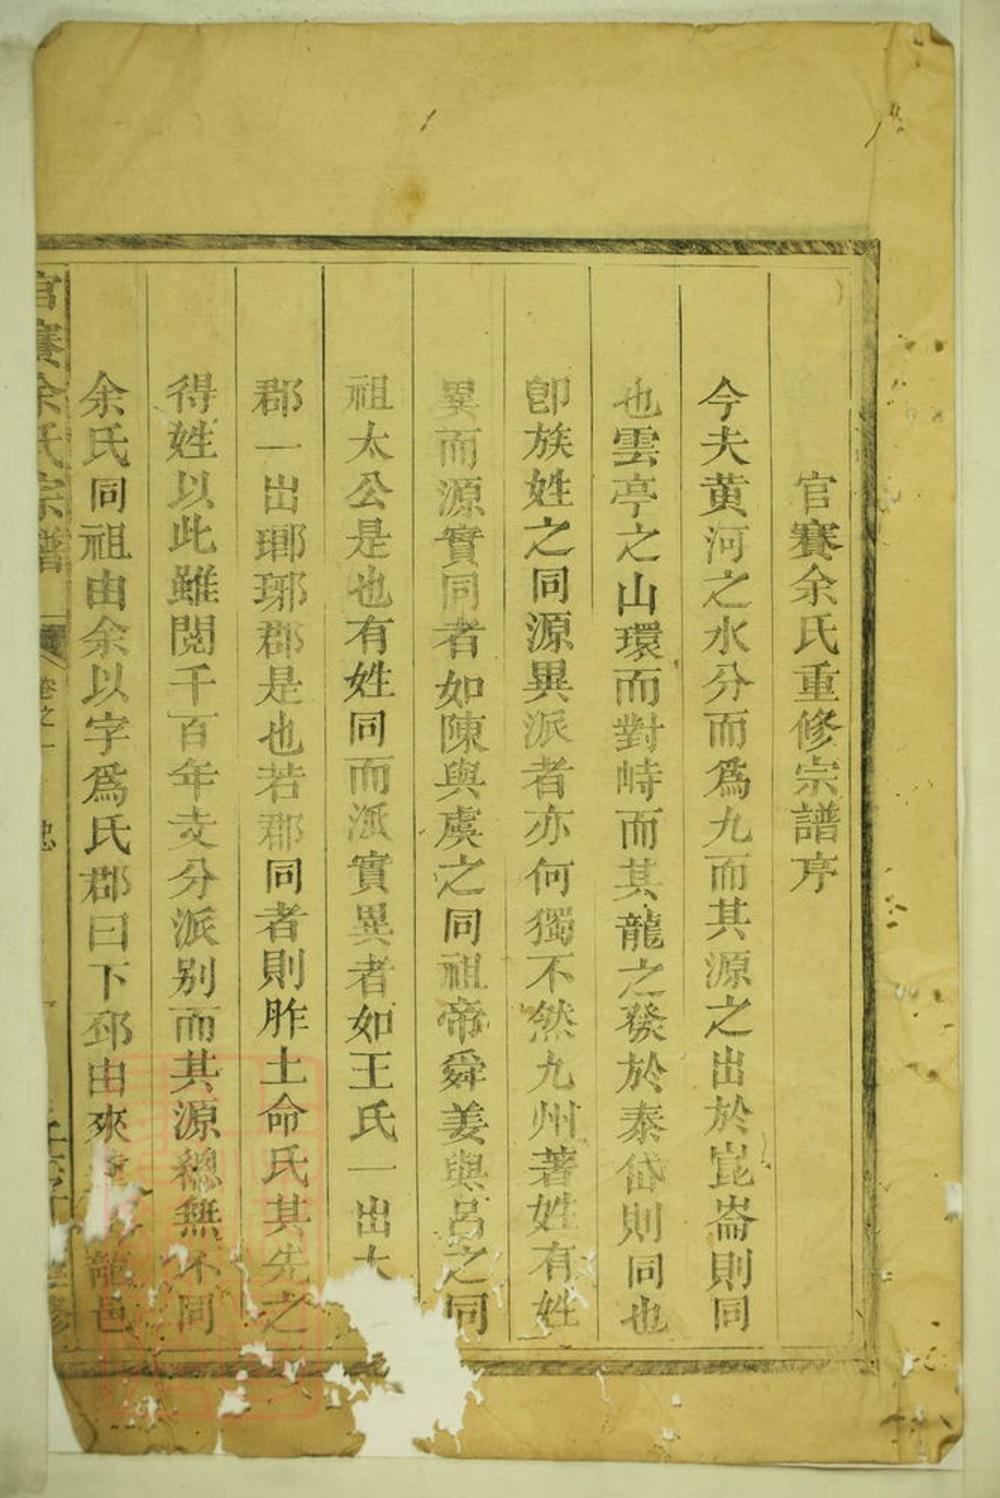 官賽余氏重修宗譜序
今夫黄河之水分而為九而其源之出於崑崙則同
也雲亭之山環而對峙而其龍之發於泰岱則同也
卽族姓之同源異派者亦何獨不然九州著姓有姓
異而源實同者如陳與虞之同祖帝舜姜與呂之同
祖太公是也有姓同而派實異者如王氏一出太
郡一出瑯琊郡是也若郡同者則胙土命氏其先之
得姓以此雖閱千百年支分派别而其源總無不同
余氏同祖由余以字爲氏郡曰下邳由來 龍邑
官賽余氏宗譜 卷之一 忠